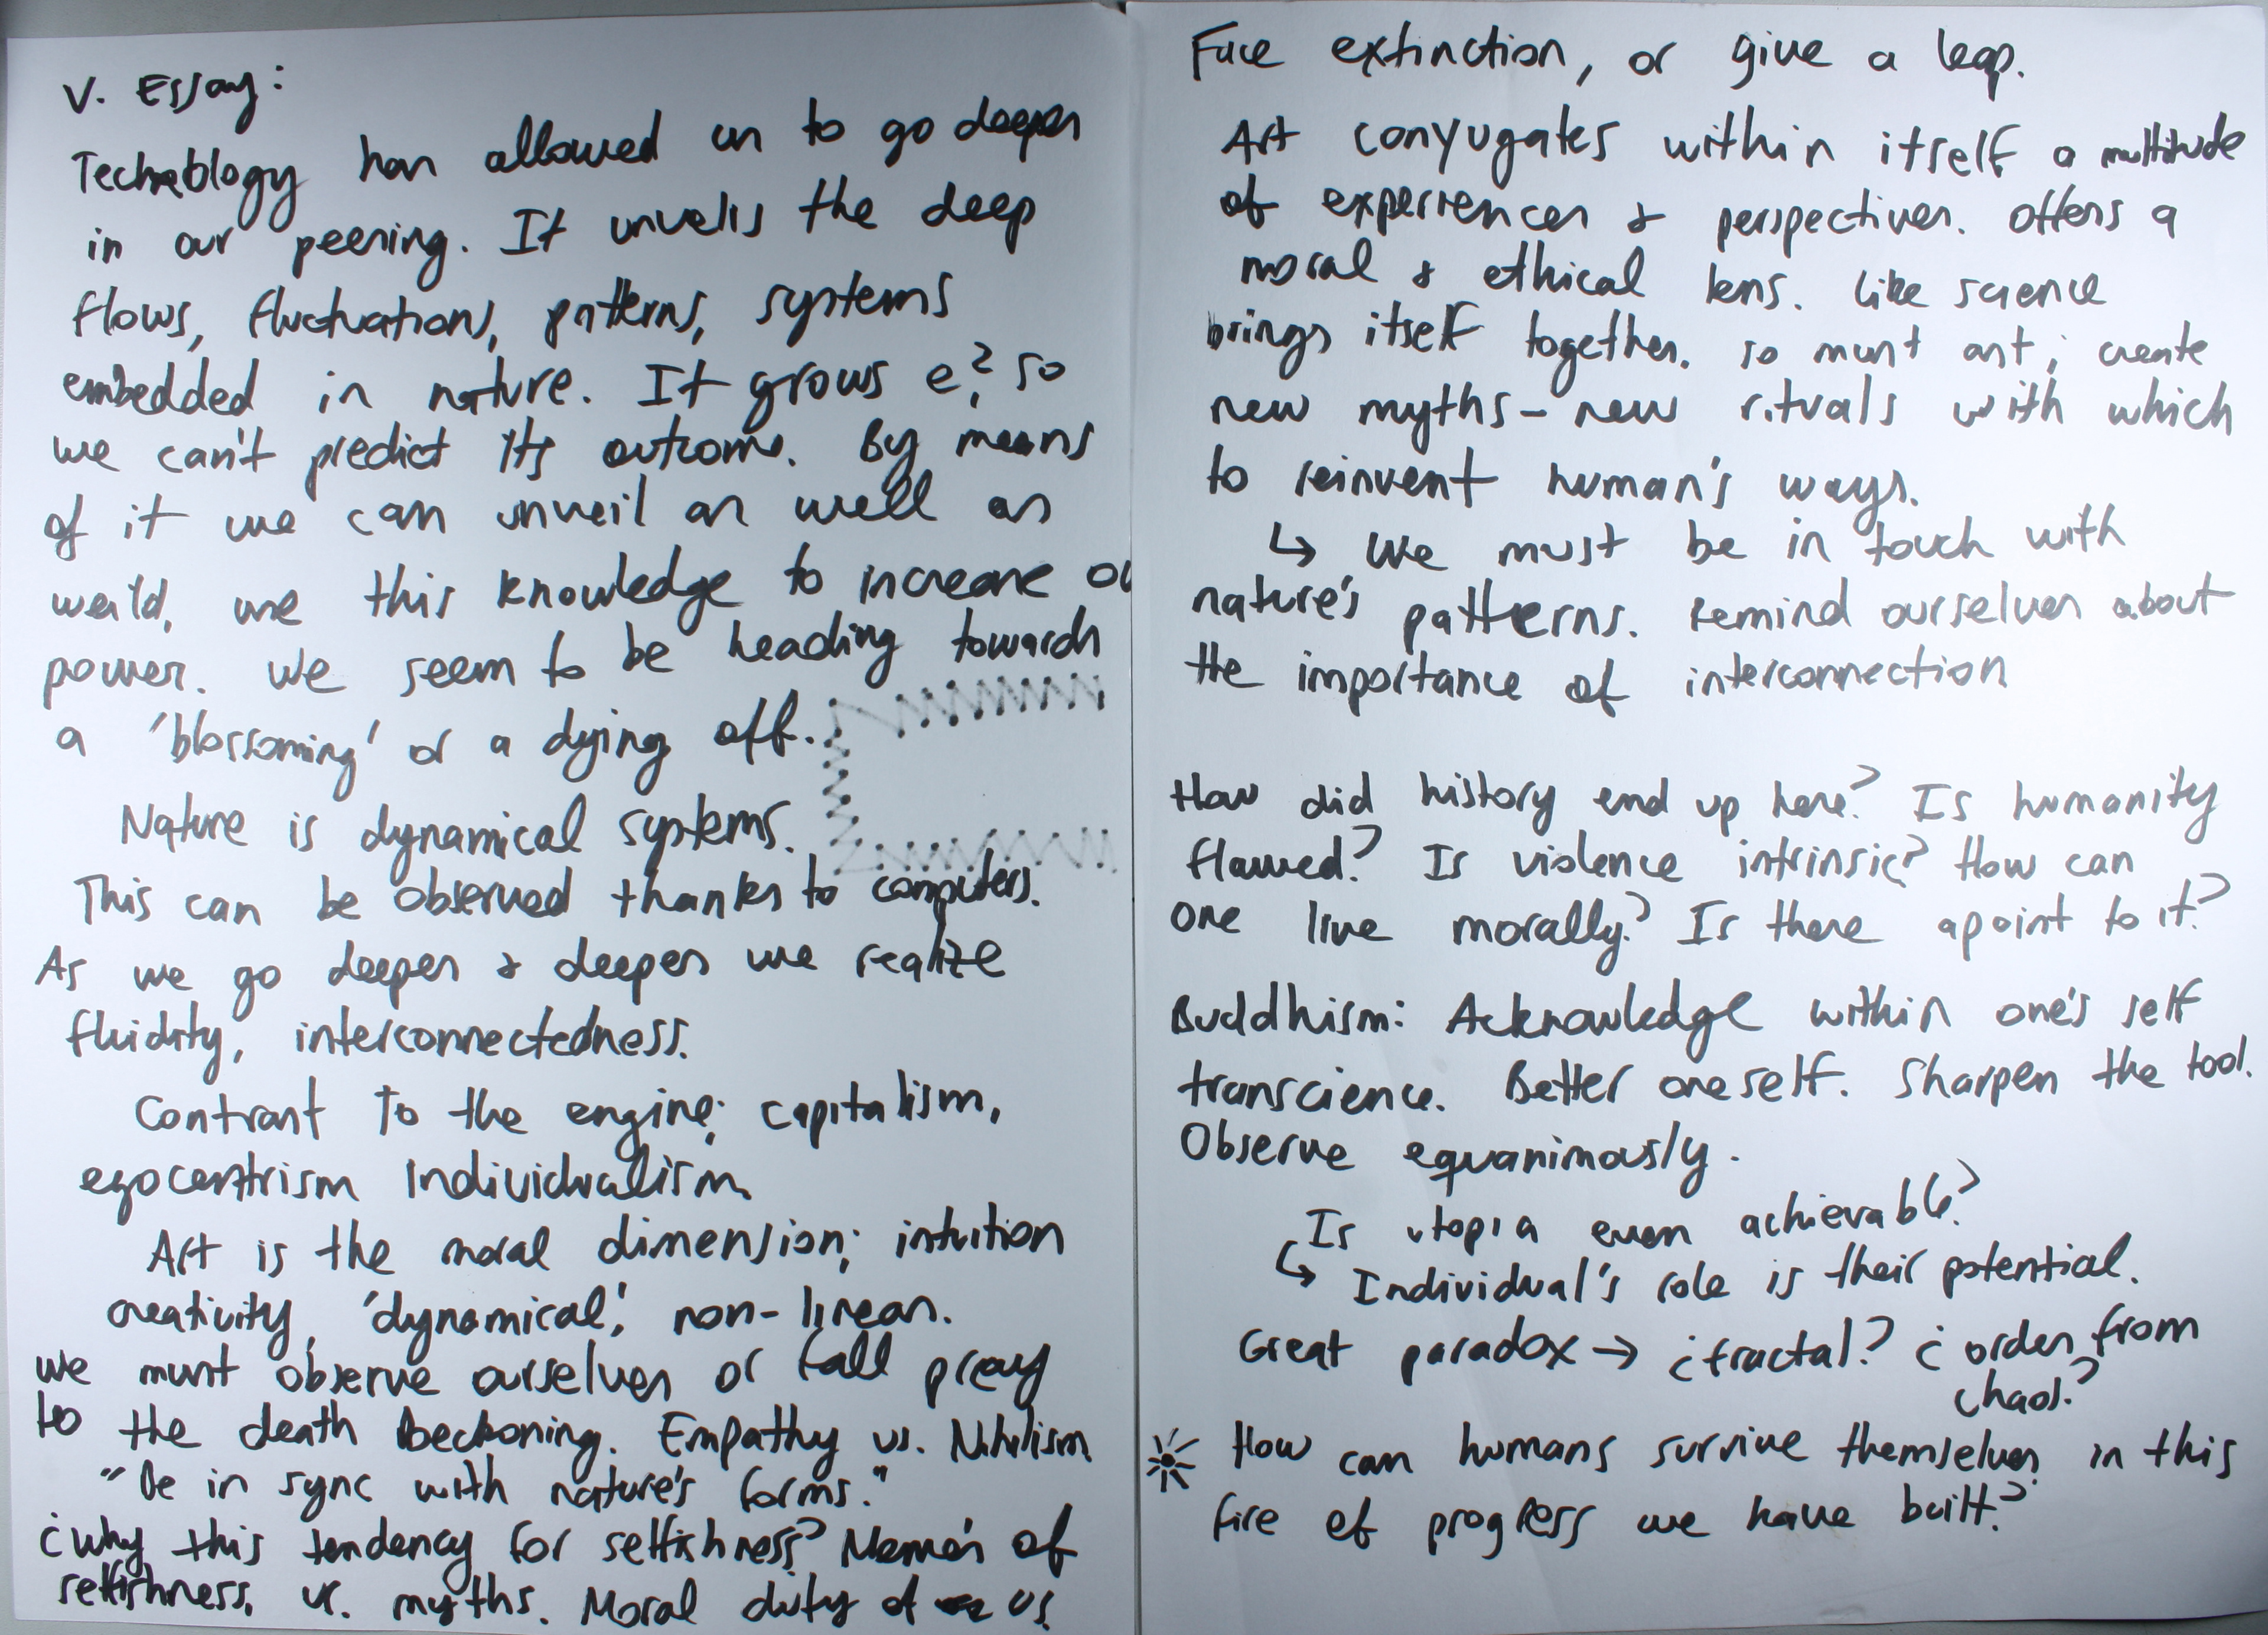 V. Essay:
Technology has allowed us to go deeper
in our peering. It unvelis the deep
flows, fluctuations, patterns, systems
embedded in nature. It grows e,? so
we can't predict its outcome. By means
of it we can unveil as well as
weild, use this knowledge to increase ou
power. We seem to be heading towards
a 'blossoming' or a dying off.
Nature is dynamical systems.
This can be observed thanks to computers.
As we go deeper & deeper we realize
fluidity, interconnectedness.
Contrast to the engine; capitalism,
egocentrism Individualism.
Art is the moral dimension; intuition
creativity, 'dynamical', non-linear.
we must observe ourselves or fall prey
to the death beckoning. Empathy vs. Nihilism
"Be in sync with nature's forms."
¿Why this tendency for selfishness? of
selfishness, vs. myths. Moral duty of us.
Face extinction, or give a leap.
Art conyugates within itself a multitude
of experiences & perspectives. Offers a
moral & ethical lens. Like science
brings itself together, so must art; create
new myths - new rituals with which
to reinvent human's ways.
↳ We must be in touch with
nature's patterns. Remind ourselves about
the importance of interconnection
How did history end up here? Is humanity
flawed? Is violence intrinsic? How can
one live morally? Is there a point to it?
Buddhism: Acknowledge within one's self
transcience. Better oneself. Sharpen the tool.
Observe equanimously.
Is utopia even achievable?
↳ Individual's role is their potential.
Great paradox → ¿fractal? ¿order from
chaos?
How can humans survive themselves in this
fire of progress we have built?